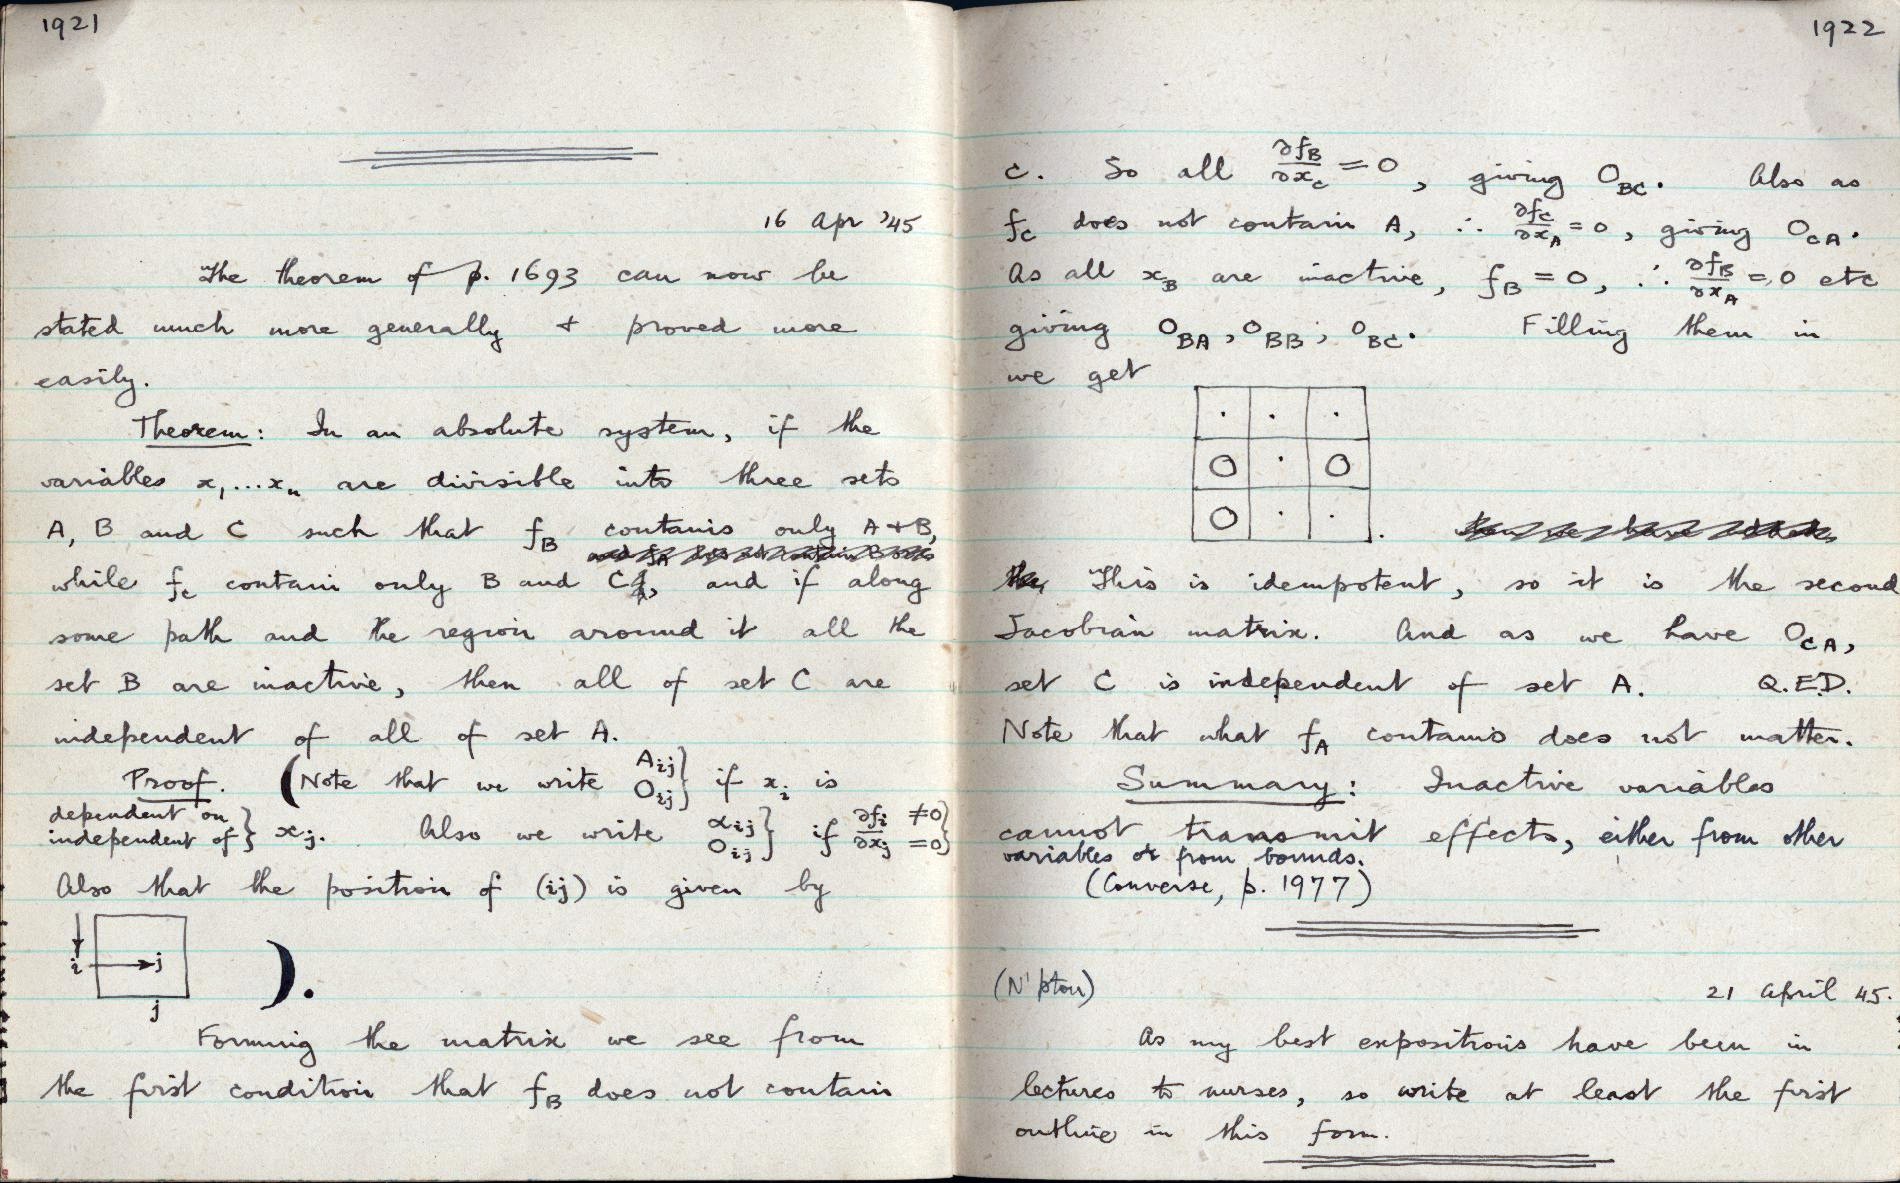 1921
16 Apr '45
The theorem of p. 1693 can now be
stated much more generally + proved more
easily.
Theorem: In an absolute system, if the
variables x₁...xₙ are divisible into three sets
A, B and C such that f_B contains only A + B,
while f_c contain only B and C, and if along
some path and the region around it all the
set B are inactive, then all of set C are
independent of all of set A.
Proof. (Note that we write A_ij } if x_i is
O_ij
dependent on
independent of } x_j. Also we write α_ij } if ∂f_i/∂x_j ≠0 }
O_ij =0
Also that the position of (ij) is given by
i → j
j
).
Forming the matrix we see from
the first condition that f_B does not contain
1922
C. So all ∂f_B/∂x_c = 0, giving O_BC. Also as
f_c does not contain A, ∴ ∂f_c/∂x_A = 0, giving O_CA.
As all x_B are inactive, f_B = 0, ∴ ∂f_B/∂x_A = 0 etc
giving O_BA, O_BB, O_BC. Filling them in
we get
. . .
O . O
O . .
This is idempotent, so it is the second
Jacobian matrix. And as we have O_CA,
set C is independent of set A. Q.E.D.
Note that what f_A contains does not matter.
Summary: Inactive variables
cannot transmit effects, either from other
variables or from bounds.
(Converse, p. 1977)
(N'pton)
21 April 45.
As my best expositions have been in
lectures to nurses, so write at least the first
outline in this form.